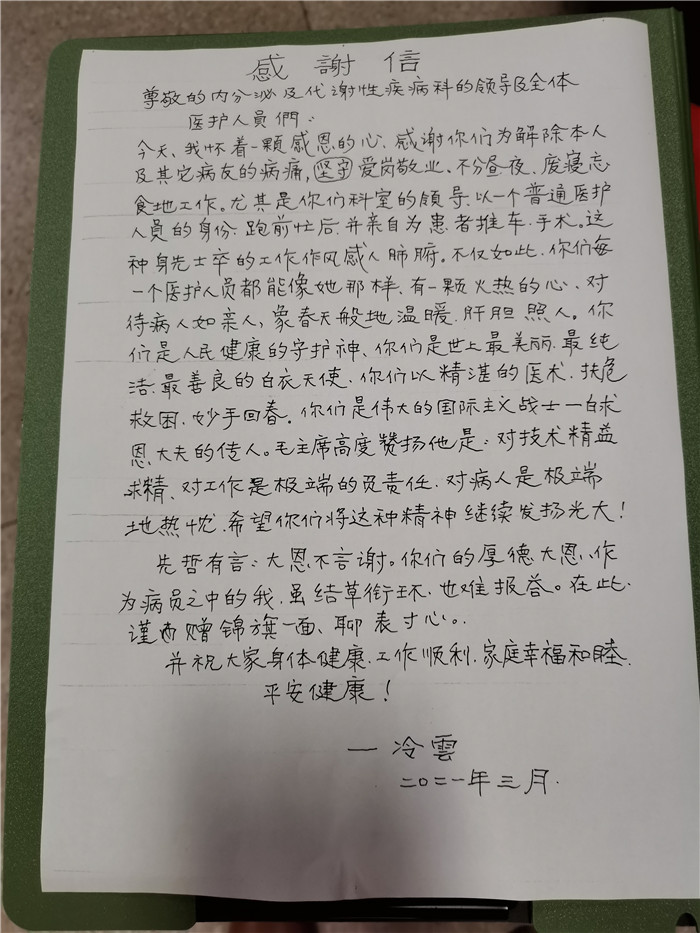 感 謝 信
尊敬的内分泌及代谢性疾病科的领导及全体
医护人员們：
今天、我怀着一颗感恩的心、感谢你们为解除本人
及其它病友的病痛，坚守爱岗敬业、不分昼夜、废寝忘
食地工作。尤其是你们科室的领导、以一个普通医护
人员的身份、跑前忙后、并亲自为患者推车、手术。这
种身先士卒的工作作风感人肺腑。不仅如此、你们每
一个医护人员都能像她那样、有一颗火热的心、对
待病人如亲人、象春天般地温暖、肝胆照人。你
们是人民健康的守护神、你们是世上最美丽、最纯
洁、最善良的白衣天使、你们以精湛的医术、扶危
救困、妙手回春。你们是伟大的国际主义战士一白求
恩大夫的传人。毛主席高度赞扬他是：对技术精益
求精、对工作是极端的负责任、对病人是极端
地热忱、希望你们将这种精神继续发扬光大！
先哲有言：大恩不言谢。你们的厚德大恩、作
为病员之中的我、虽结草衔环、也难报答。在此、
谨赠锦旗一面、聊表寸心。
并祝大家身体健康、工作顺利、家庭幸福和睦、
平安健康！
— 冷雲
二〇二一年三月.